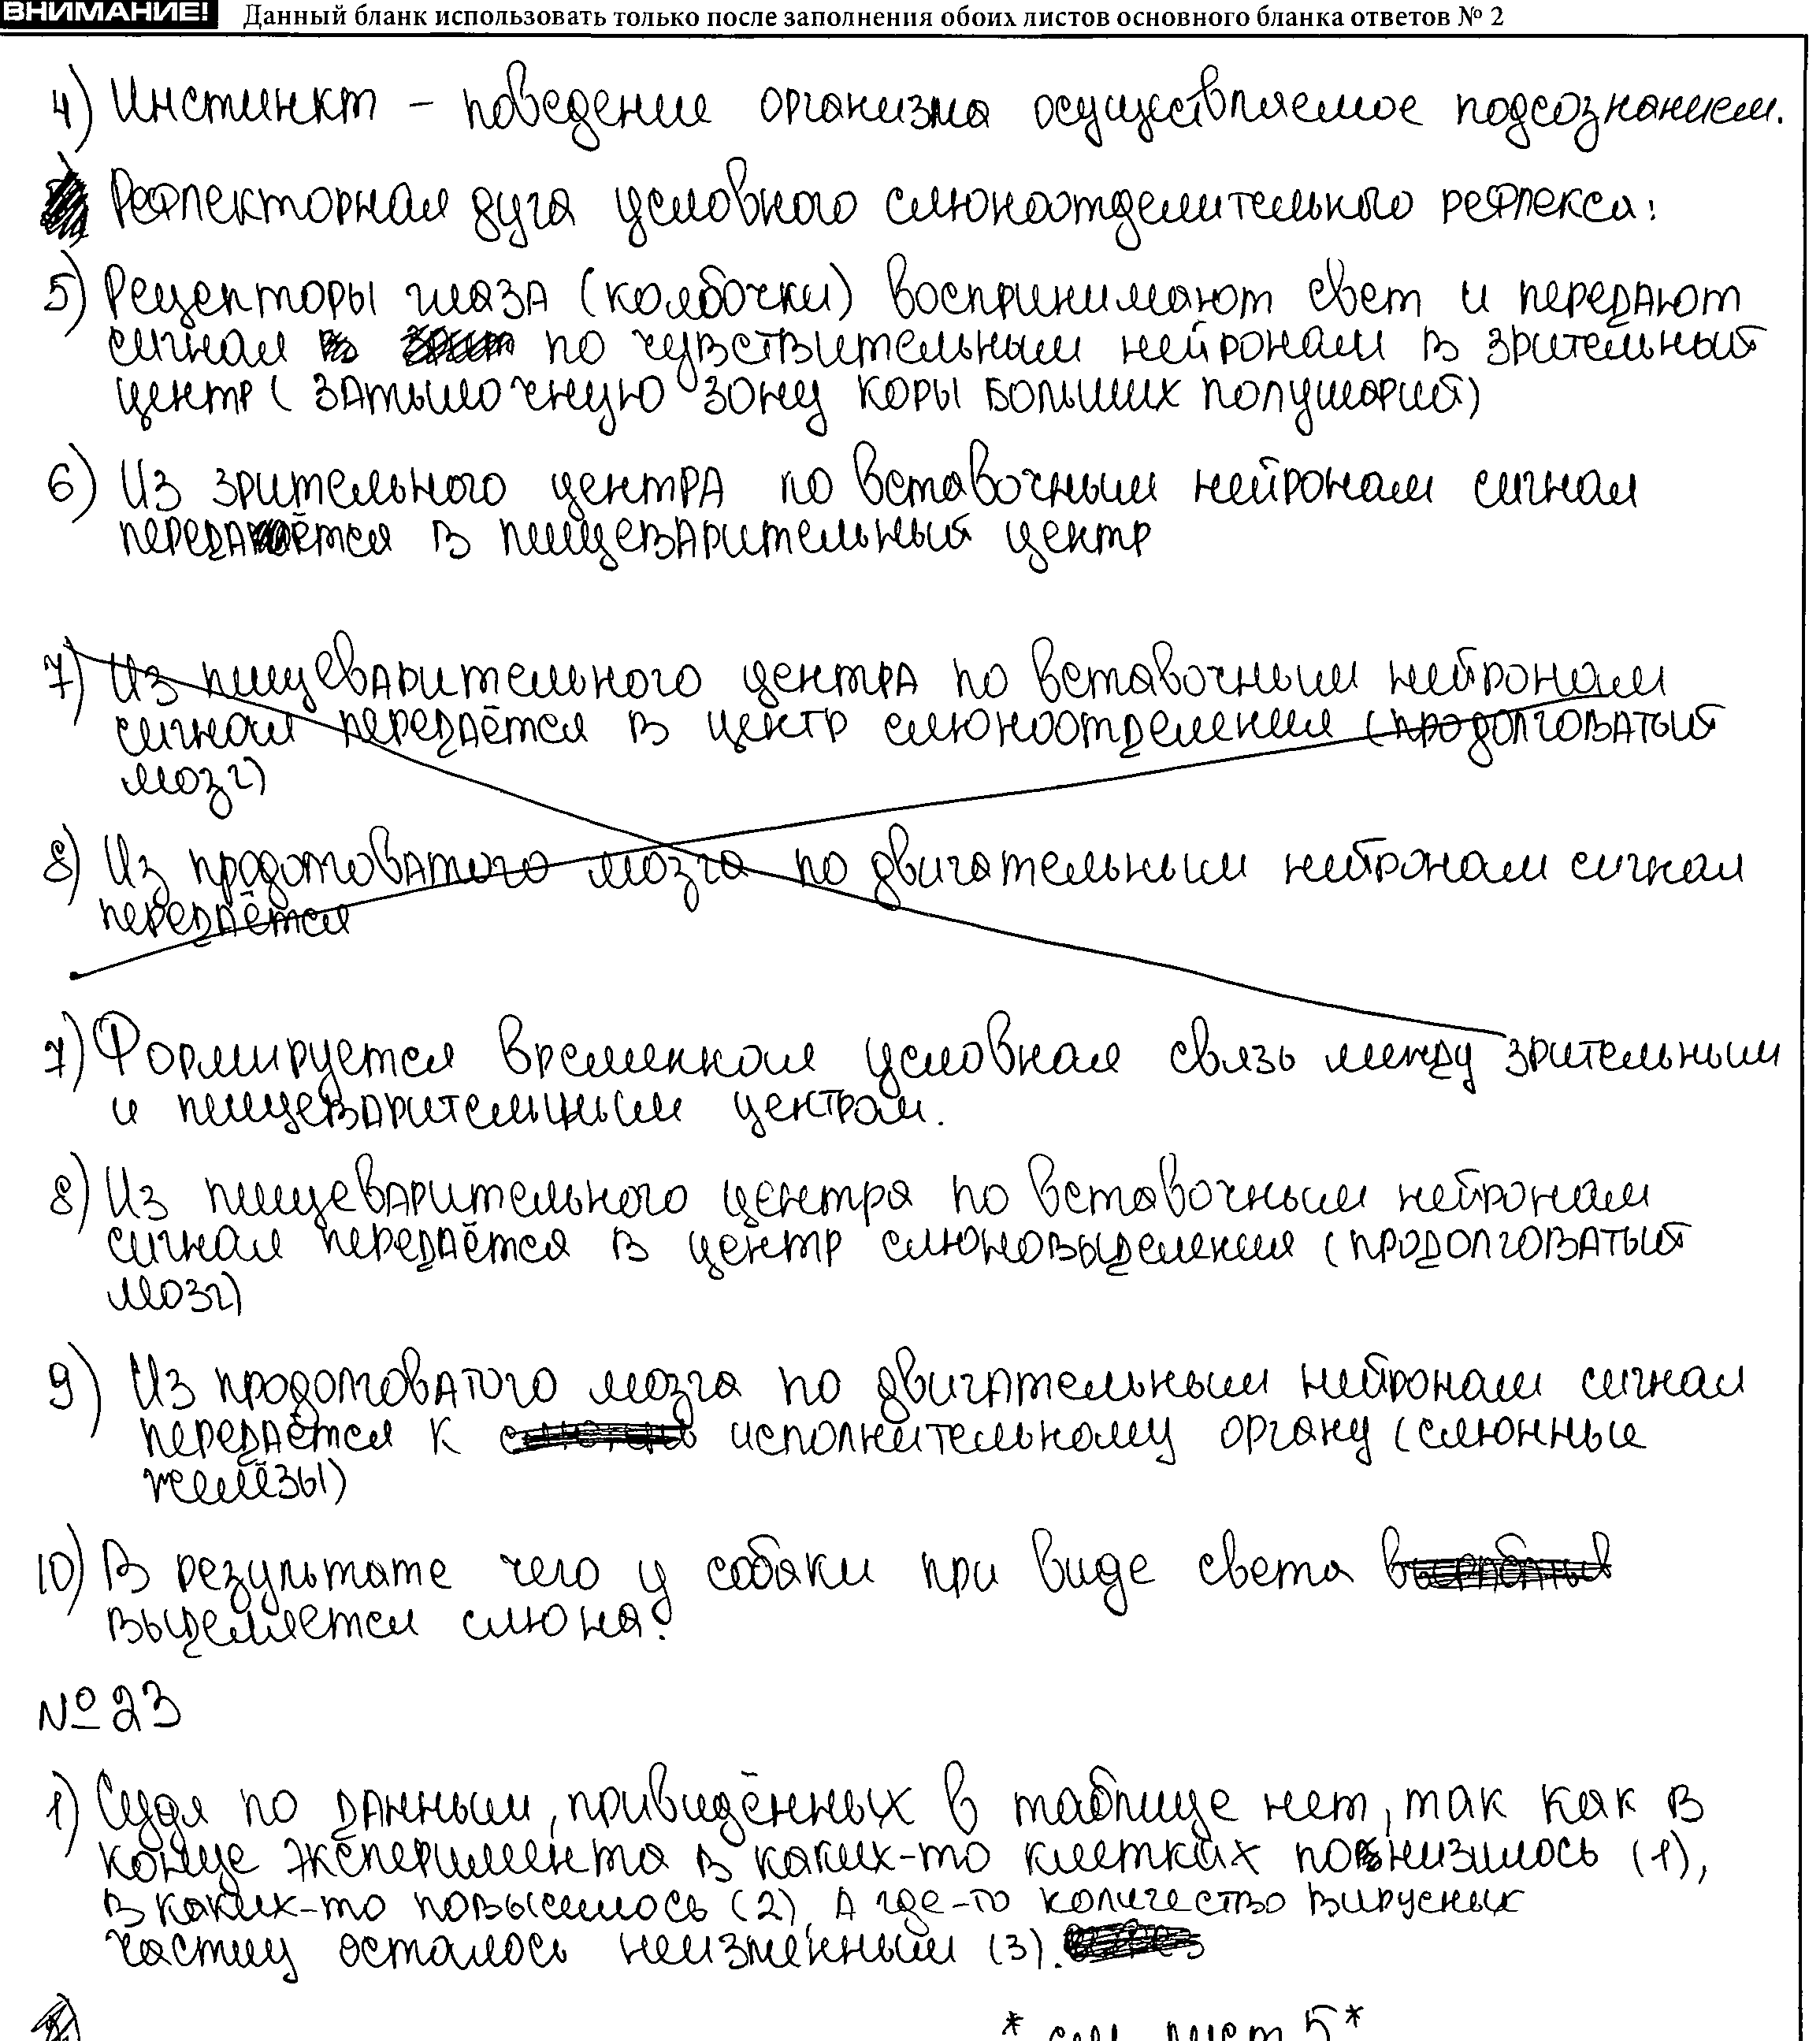 ВНИМАНИЕ! Данный бланк использовать только после заполнения обоих листов основного бланка ответов № 2
4) Инстинкт – поведение организма осуществляемое подсознанием.
Рефлекторная дуга условного слюноотделительного рефлекса:
5) Рецепторы глаза (колбочки) воспринимают свет и передают
сигнал по чувствительным нейронам в зрительный
центр (затылочную зону коры больших полушарий)
6) Из зрительного центра по вставочным нейронам сигнал
передаётся в пищеварительный центр
7) Из пищеварительного центра по вставочным нейронам
сигнал передаётся в центр слюноотделения (продолговатый
мозг)
8) Из продолговатого мозга по двигательным нейронам сигнал
передаётся
7) Формируется временная условная связь между зрительным
и пищеварительным центрам.
8) Из пищеварительного центра по вставочным нейронам
сигнал передаётся в центр слюновыделения (продолговатый
мозг)
9) Из продолговатого мозга по двигательным нейронам сигнал
передаётся к исполнительному органу (слюнные
желёзы)
10) В результате чего у собаки при виде света
выделяется слюна.
№23
1) Судя по данным, привидённых в таблице нет, так как в
конце эксперимента в каких-то клетках понизилось (1),
в каких-то повысилось (2), а где-то количество вирусных
частиц осталось неизменным (3).
* см. лист 5*